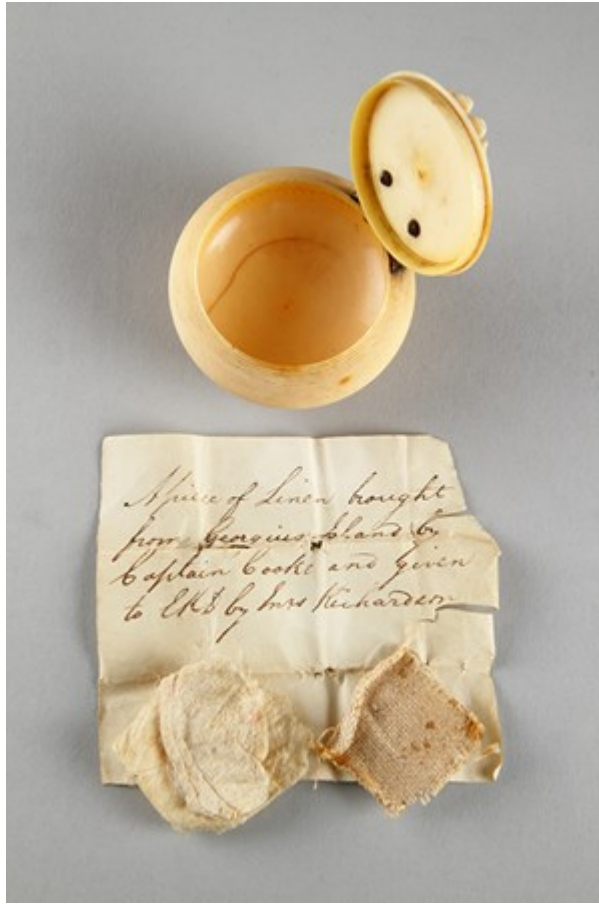 A piece of Linen brought
from Georgius Island by
Captain Cooke and given
to EKD by Mrs Richardson